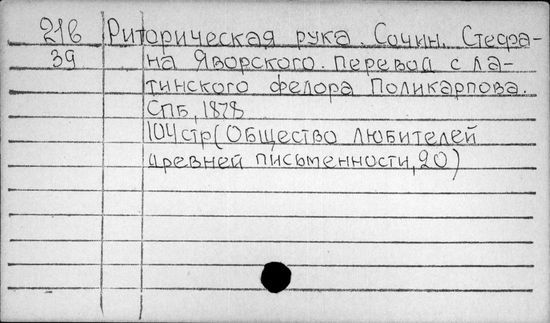 216 Риторическая рука. Сочин. Стефа-
39 на Яворского. Перевод с ла-
тинского Федора Поликарпова.
СПБ, 1878
104 стр (Общество любителей
древней письменности, 20)